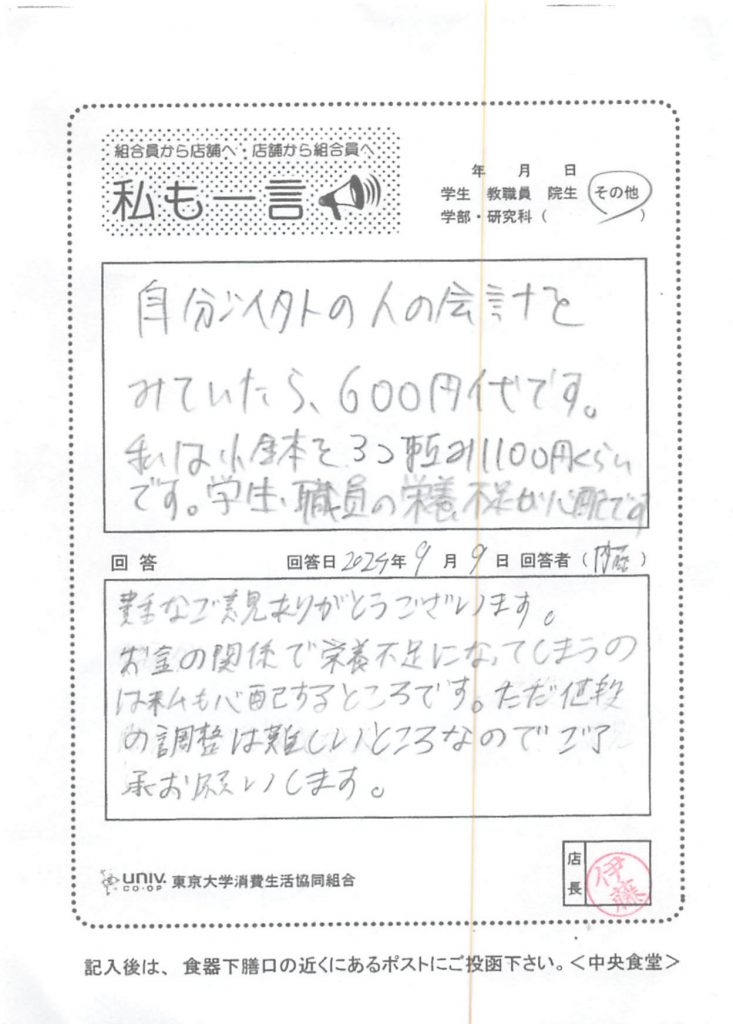 組合員から店舗へ・店舗から組合員へ
私も一言
年 月 日
学生 教職員 院生 その他
学部・研究科( )
自分以外の人の会計を
みていたら、600円代です。
私は小鉢を3つ頼み1100円くらい
です。学生、職員の栄養不足が心配です
回答 回答日2024年9月9日 回答者(内藤)
貴重なご意見ありがとうございます。
お金の関係で栄養不足になってしまうの
は私も心配するところです。ただ値段
の調整は難しいところなのでご了
承お願いします。
univ. CO-OP 東京大学消費生活協同組合
店長 伊藤
記入後は、食器下膳口の近くにあるポストにご投函下さい。<中央食堂>